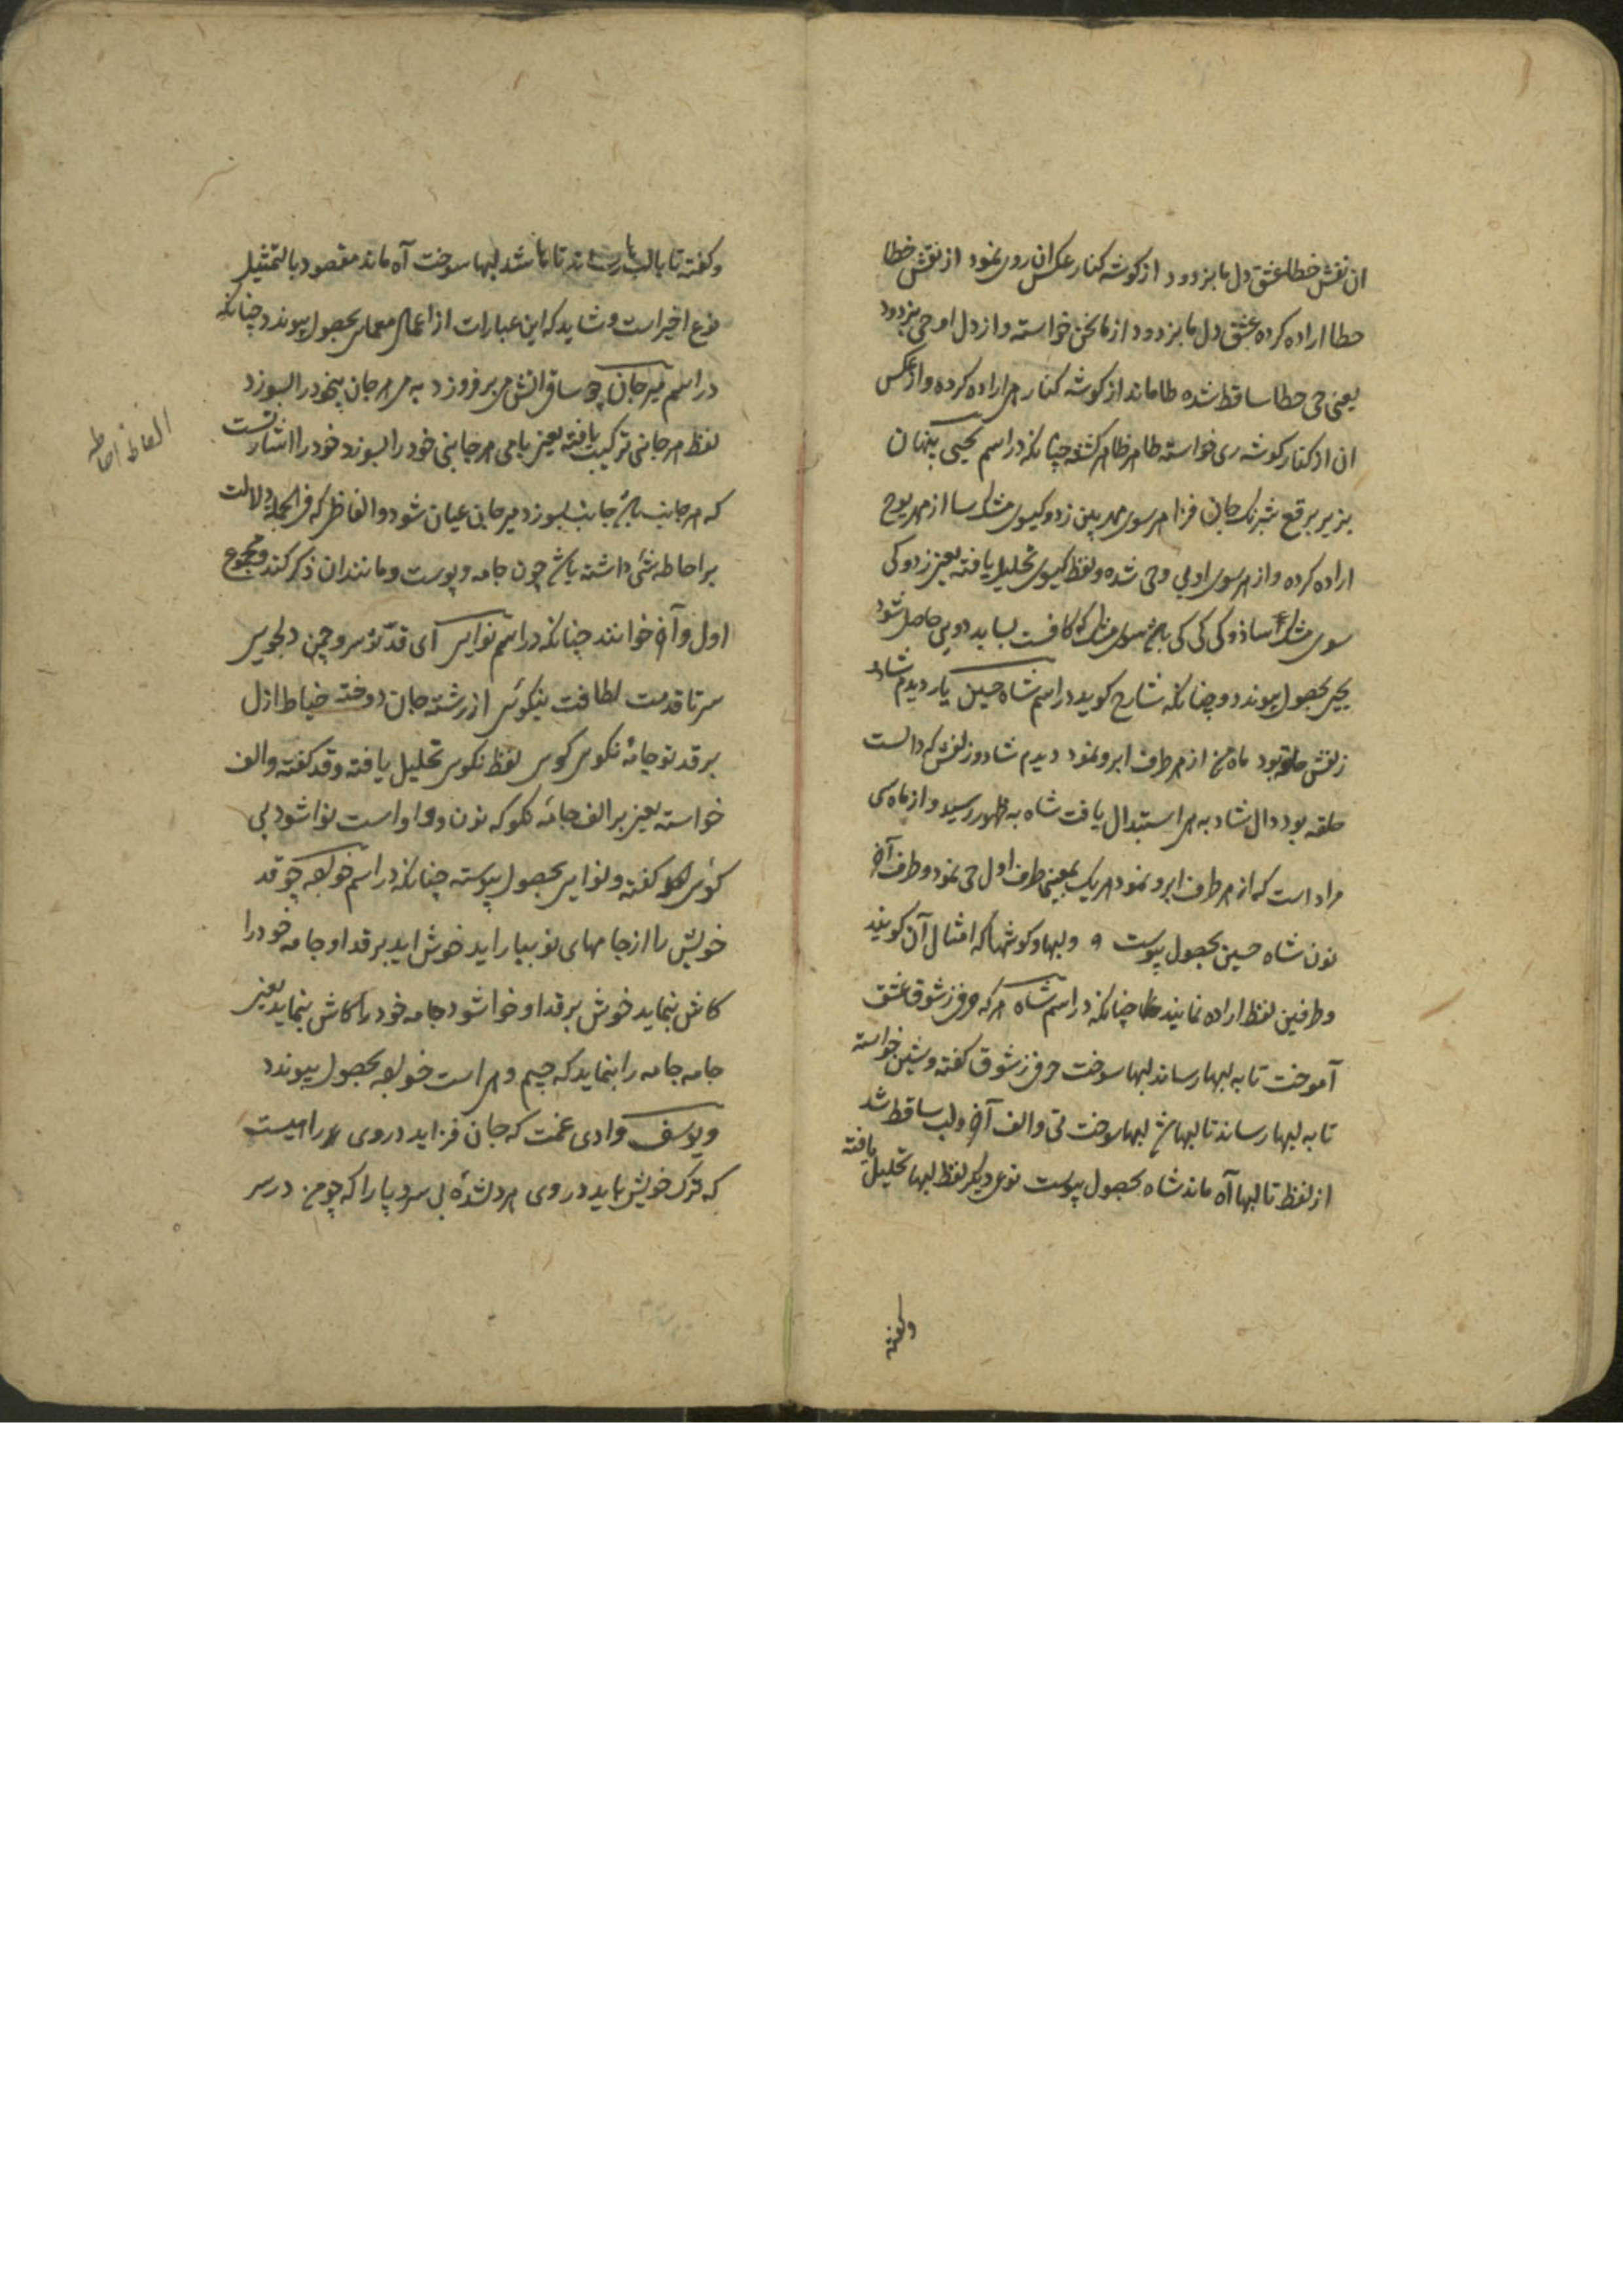 ان نقش خطا عشق دل ما بزدود از کوشه کنار عکس ان روی نمود از نقش خطا
حطا اراده کرده بعشق دل ما بزدود از ما نحن خواسته و از دل او حی بزدود
یعنی حی حطا ساقط شده طا ماند از کوشه کنار اراده کرده و از عکس
ان از کنار کوشه ری خواسته طاهر ظاهر کشته چنانکه در اسم یحیی پنهان
بزیر برقع شبرنک جان فزا هر سوی مه پین زد و کیسوی مشک سا از مه یوح
اراده کرده و از هر سوی او یی و حی شده و لفظ کیسوی تحلیل یافته یعنی زد و کی
سوی مشک کی کی که کافست بساید دو یی حاصل شود
یحیی بحصول پیوندد و چنانکه شارح کوید در اسم شاه حسین یار دیدم شاد
زلفش حلقه بود ماه من از هر طرف ابرو نمود دیدم شاد و زلفش که دالست
حلقه بود دال شاد به استبدال یافت شاه به ظهور رسید و از ماه سی
مراد است که از هر طرف ابرو نمود هر یک یعنی طرف اول حی نمود و طرف آخر
نون شاه حسین بحصول پیوست و لبها و کوشها که امثال آن کویند
و طرفین لفظ اراده نمایند چنانکه در اسم شاه هر که حرفی ز شوق عشق
آموخت تا به لبها رساند لبها سوخت حرفی ز شوق کفته و شین خواسته
تا به لبها رساند تا لبها لبها سوخت تی و الف آخر و لب ساقط شد
از لفظ تا لبها آه ماند شاه بحصول پیوست نوعی دیکر لفظ لبها تحلیل یافته
وکفته
وکفته تا با لب رساند تا با شد لبها سوخت آه ماند مقصود بالتمثیل
نوع اخیر است و شاید که این عبارات از اعمال معمای بحصول پیوندد چنانکه
در اسم میر جان چو ساقی اتش می بر فروزد به می هر جان بیخود را بسوزد
لفظ هر جانی ترکیب یافته یعنی بامی هر جانبی خود را بسوزد خود را اشارتست
که هر جانب جانب بسوزد میر جان عیان شود و الفاظی که فی الجمله دلالت
بر احاطه شی داشته باشد چون جامه و پوست و مانند ان ذکر کنند و مجموع
اول و آخر خوانند چنانکه در اسم نوایی ای قد تو سرو چمن دلجویی
سر تا قدمت لطافت نیکویی از رشته جان دوخته خیاط ازل
بر قد تو جامه نکوی کوی لفظ نکوی تحلیل یافته و قد کفته و الف
خواسته یعنی بر الف جامه نکو که نون و واو است نوا شود یی
کوی کفته و نوایی بحصول پیوسته چنانکه در اسم خواجه چو قد
خویش را از جامهای نو بیاراید خوش اید بر قد او جامه خود را
کاش بنماید خوش بر قد او خوا شود جامه خود را کاش بنماید یعنی
جامه جامه را بنماید که جیم و است خواجه بحصول پیوندد
و یوسف وادی غمت که جان فزاید در وی راهیست
که ترک خویش باید در وی هر دلشده بی سر و پا را که چو من در سر
الفاظ احاطه